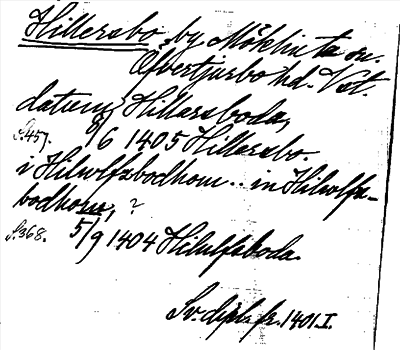 Hillersbo, by Möklinta sn.
Öfvertjurbo hd. Vst.
datum, Hillarsboda,
s. 457. 8/6 1405 Hillarsbo.
i Hilwlfsbodhom .. in Hilwlfs-
bodhom, ?
s. 368. 5/9 1404 Hilulfsboda.
Sv. dipl. fr. 1401. I.